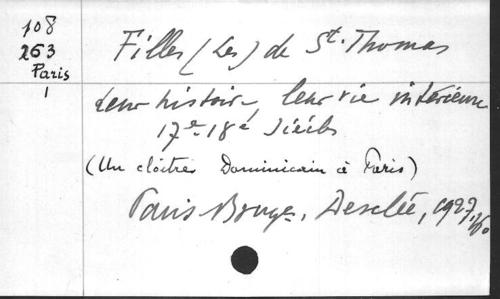 108
253
Paris
1
Filles (Les) de St. Thomas
Leur histoire, leur vie intérieure
17e-18e Siècles
(Un cloître Dominicain à Paris)
Paris Bruges, Desclée, 1927,